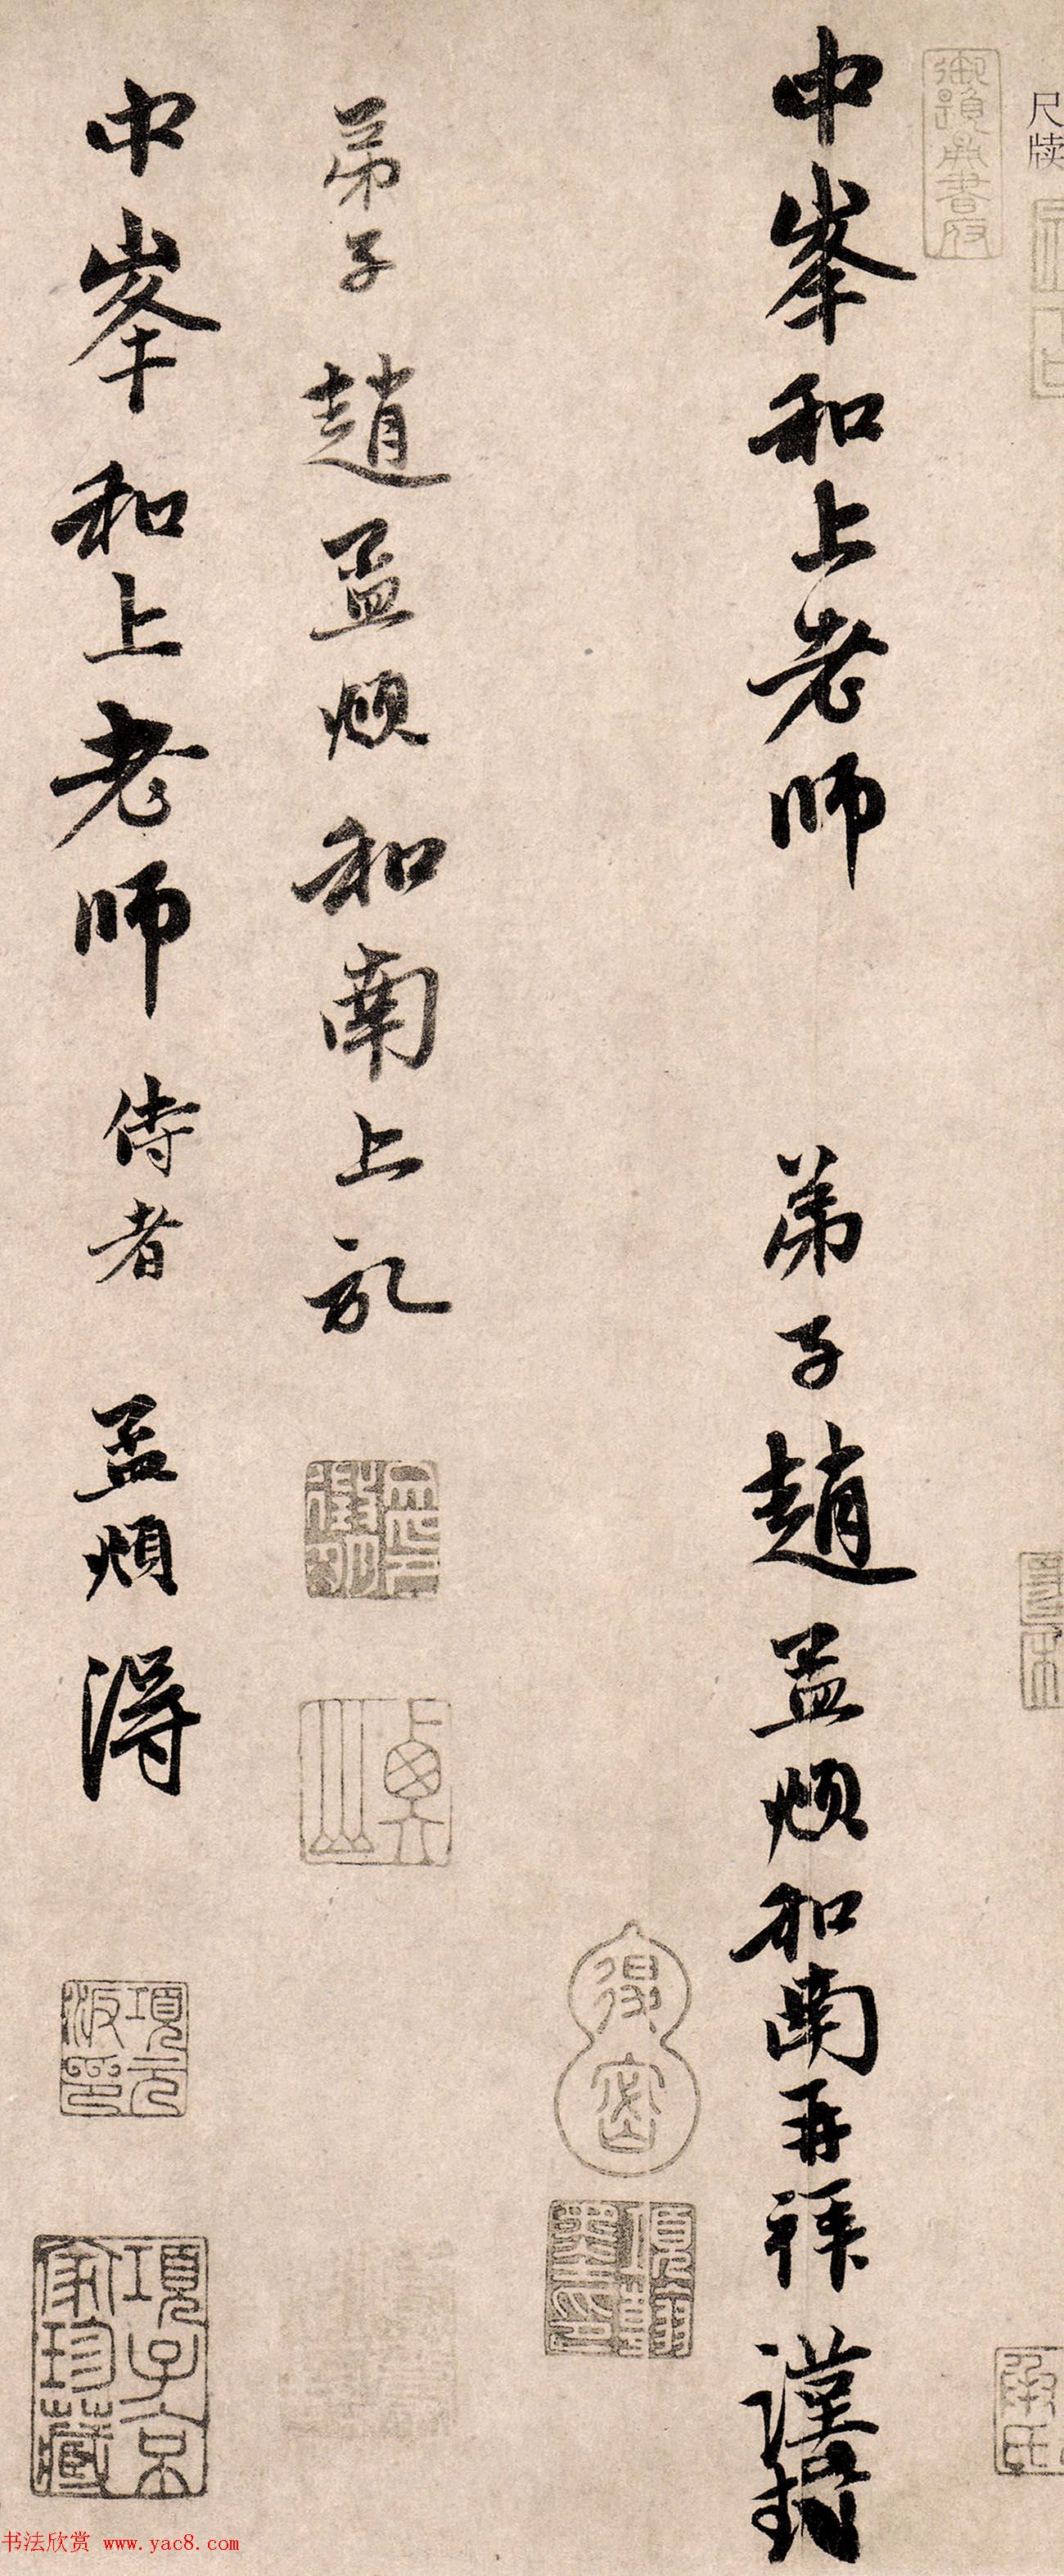 尺牍
中峯和上老师 弟子趙孟頫和南再拜謹封
弟子趙孟頫和南上記
中峯和上老师侍者 孟頫 得
得密
項元汴印
項子京家珍藏
书法欣赏 www.yac8.com